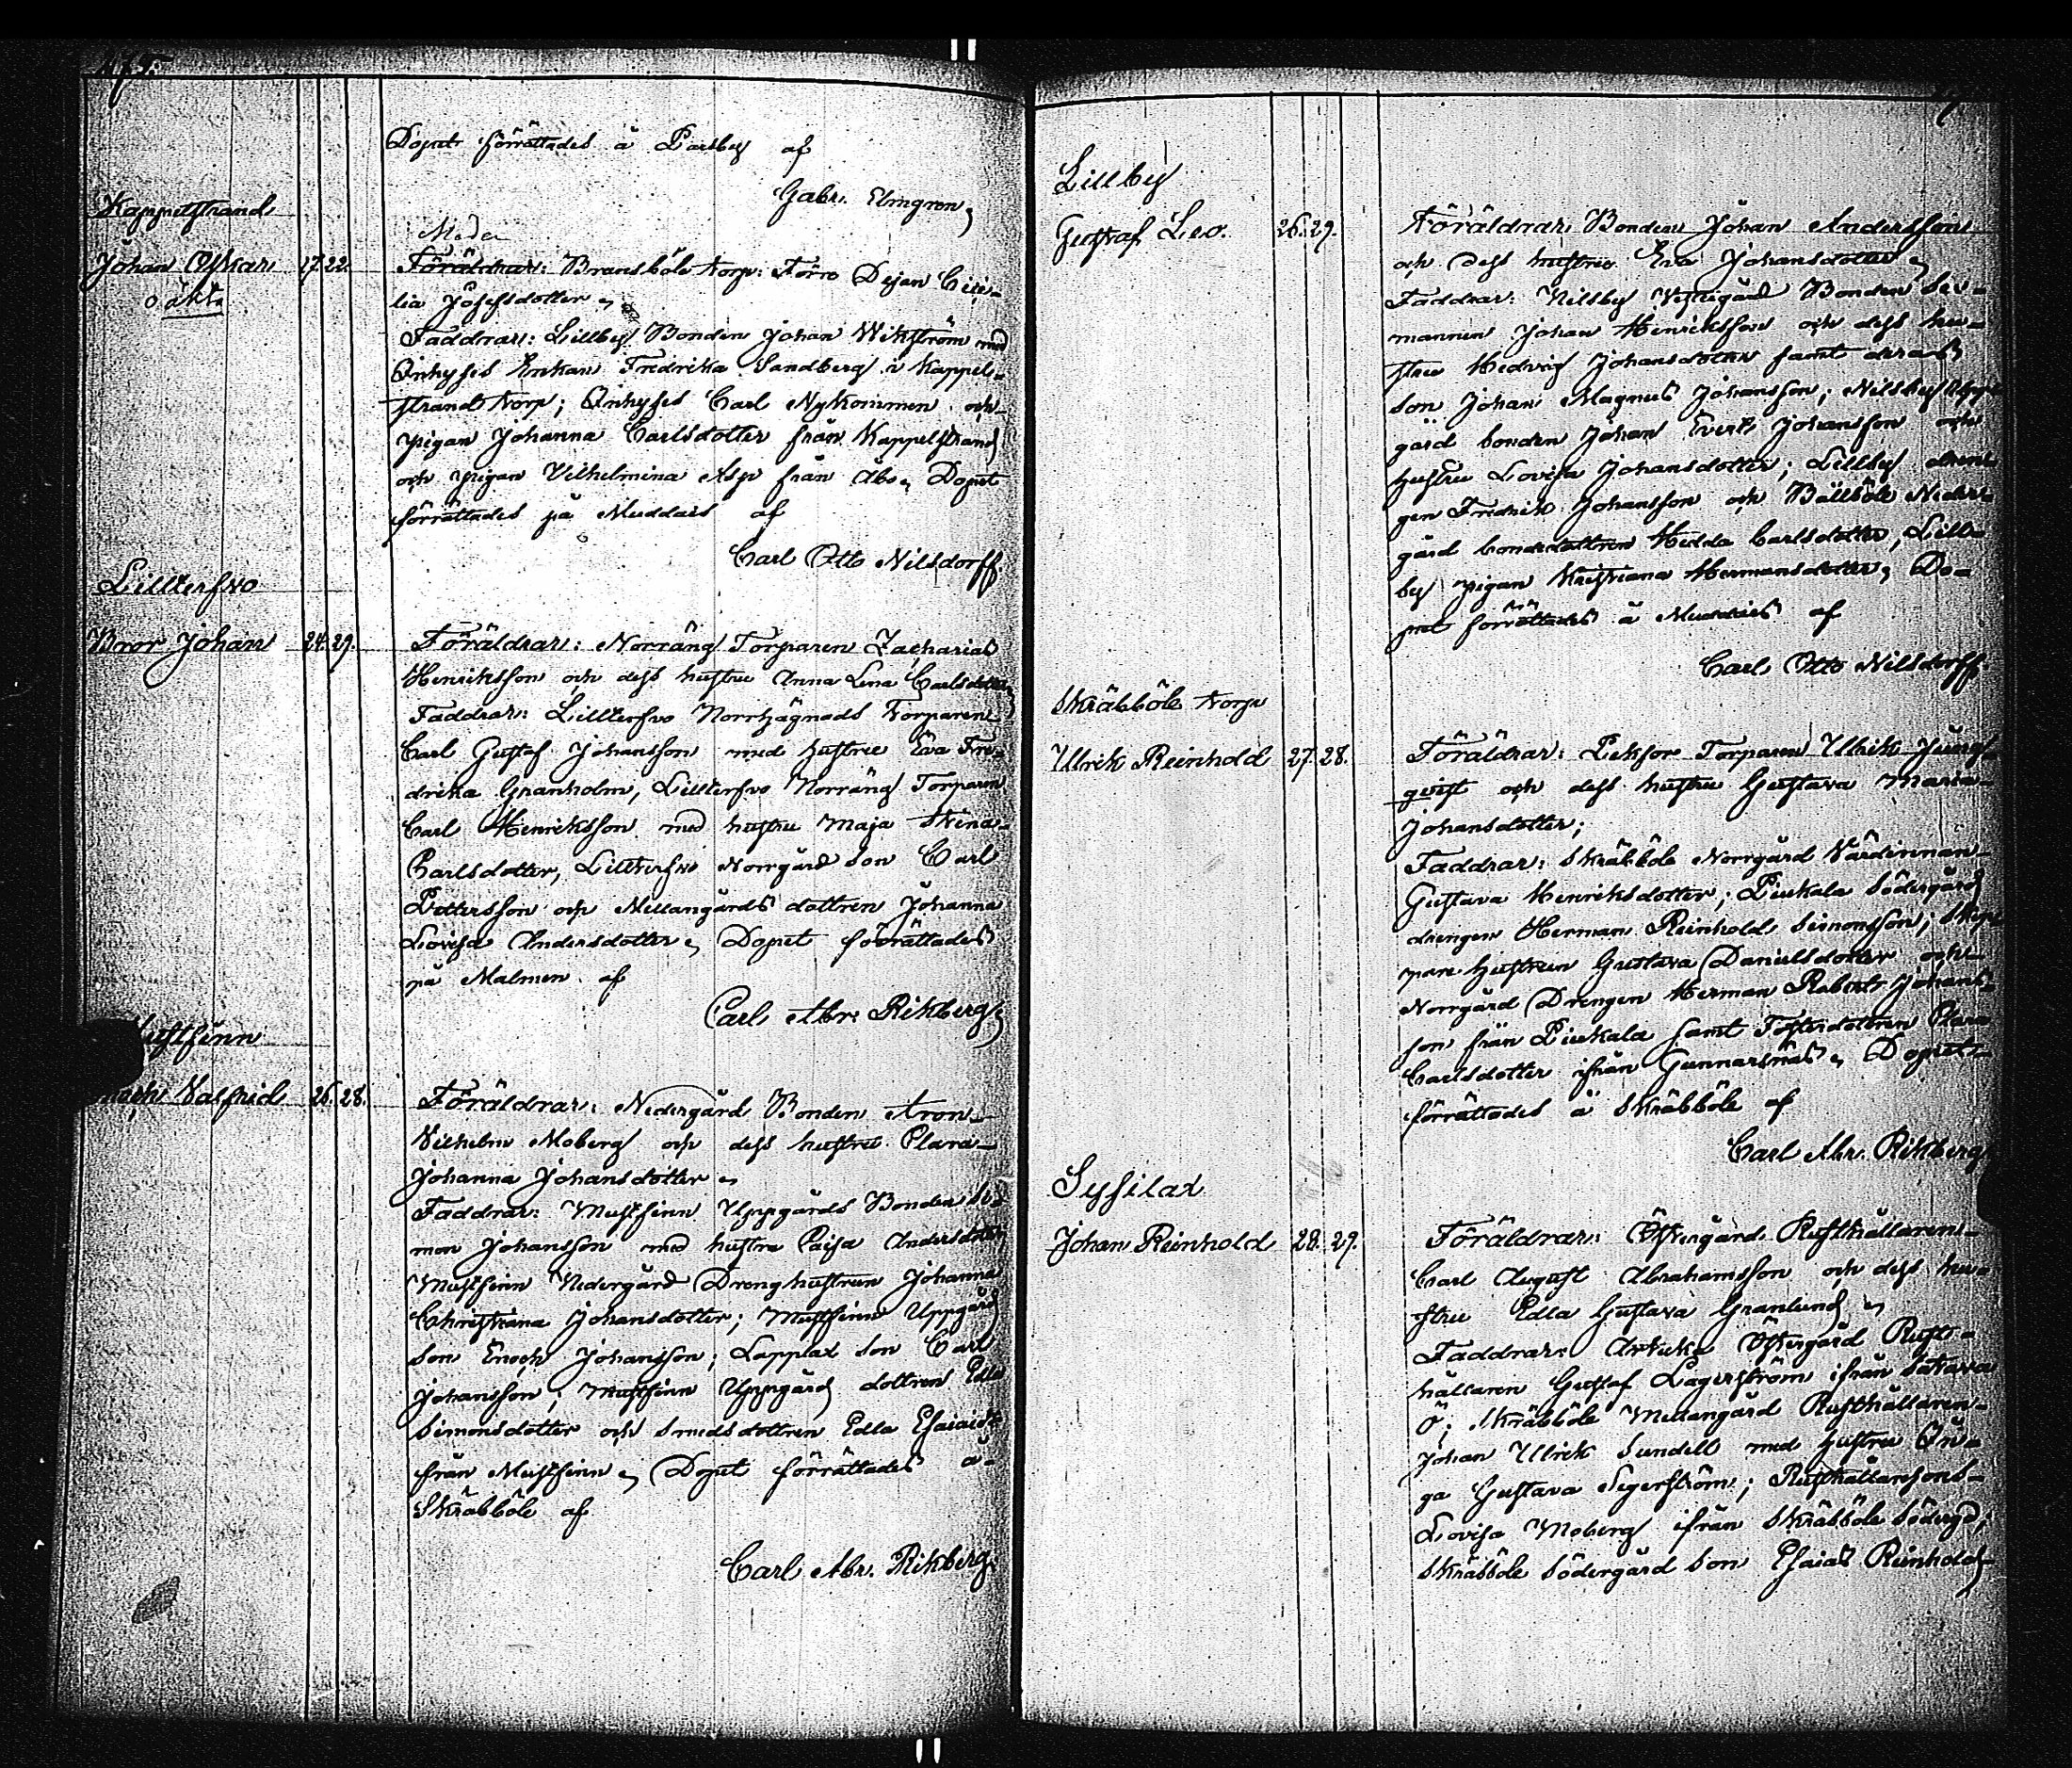 Dopet förrättades å Parsby af
Gabr. Elmgren,
Kappelstrand
Moder
Johan Oskar 17. 22. Föräldrar: Bransböle torp: Förre Dejan Ceci-
oäkta lia Josefsdotter,
Faddrar: Lillby Bonden Johan Wikström med
Inhyses Enkan Fredrika Sandberg i Kappel-
strand torp; Inhyses Carl Nykommen och
pigan Johanna Carlsdotter från Kappelstrand
och pigan Vilhelmina Asp från Åbo, Dopet
förrättades på Muddais af
Carl Otto Nilsdorff.
Lilltervo
Bror Johan 24. 29. Föräldrar: Norräng Torparen Zacharias
Henriksson och dess hustru Anna Lena Carlsdotter,
Faddrar: Lilltervo Norrhägnads Torparen
Carl Gustaf Johansson med hustru Eva Fre-
drika Granholm, Lilltervo Norräng Torparen
Carl Henriksson med hustru Maja Stina
Carlsdotter, Lilltervo Norrgård son Carl
Pettersson och Mellangårds dottren Johanna
Lovisa Andersdotter, Dopet förrättades
på Malmen af
Carl Abr. Rikberg,
Mustfinn
Enoch Valfrid 26. 28. Föräldrar: Nedergård Bonden Aron
Vilhelm Moberg och dess hustru Clara
Johanna Johansdotter,
Faddrar: Mustfinn Uppgårds Bonden Si-
mon Johansson med hustru Caisa Andersdotter
Mustfinn Nedergård Drenghustrun Johanna
Christiana Johansdotter; Mustfinn Uppgård
son Enoch Johansson; Lapplax son Carl
Johansson; Mustfinn Uppgård dottren Edla
Simonsdotter och smedsdottren Edla Esaiaidr
från Mustfinn, Dopet förrättades å
Skräbböle af
Carl Abr. Rikberg,
Lillby
Gustaf Leo. 26. 29. Föräldrar Bonden Johan Andersson
och dess hustru Eva Johansdotter,
Faddrar: Nilsby Vestergård Bonden Sex-
mannen Johan Henriksson och dess hu-
stru Hedvig Johansdotter samt deras
son Johan Magnus Johansson; Nilsby Upp-
gård bonden Johan Evert Johansson och
hustru Lovisa Johansdotter; Lillby dren-
gen Fredrik Johansson och Bällböle Neder-
gård bondedottren Hedda Carlsdotter, Lill-
by pigan Kristiana Hermansdotter, Do-
pet förrättades å Muddais af
Carl Otto Nilsdorff.
Skräbböle torp
Ulrik Reinhold 27. 28. Föräldrar: Peksor Torparen Ulrik Jung-
qvist och dess hustru Gustava Maria
Johansdotter;
Faddrar: Skräbböle Norrgård Värdinnan
Gustava Henriksdotter; Piukala Södergård
drengen Herman Reinhold Simonsson; Skep-
pare hustrun Gustava Danielsdotter och
Norrgård Drengen Herman Robert Johans-
son från Piukala samt Fosterdottren Clara
Carlsdotter ifrån Gunnarsnäs, Dopet
förrättades å Skräbböle af
Carl Abr. Rikberg,
Sysilax
Johan Reinhold 28. 29. Föräldrar: Östergård Rusthållaren
Carl August Abrahamsson och dess hu-
stru Edla Gustava Granlund,
Faddrar: Attuka Östergård Rust-
hållaren Gustaf Lagerström ifrån Sattava
Ö; Skräbböle Mellangård Rusthållaren
Johan Ulrik Sundell med hustru In-
ga Gustava Segerström; Rusthållaresons
Lovisa Moberg ifrån Skräbböle Södergd,
Skräbböle Södergård son Esaias Reinhold